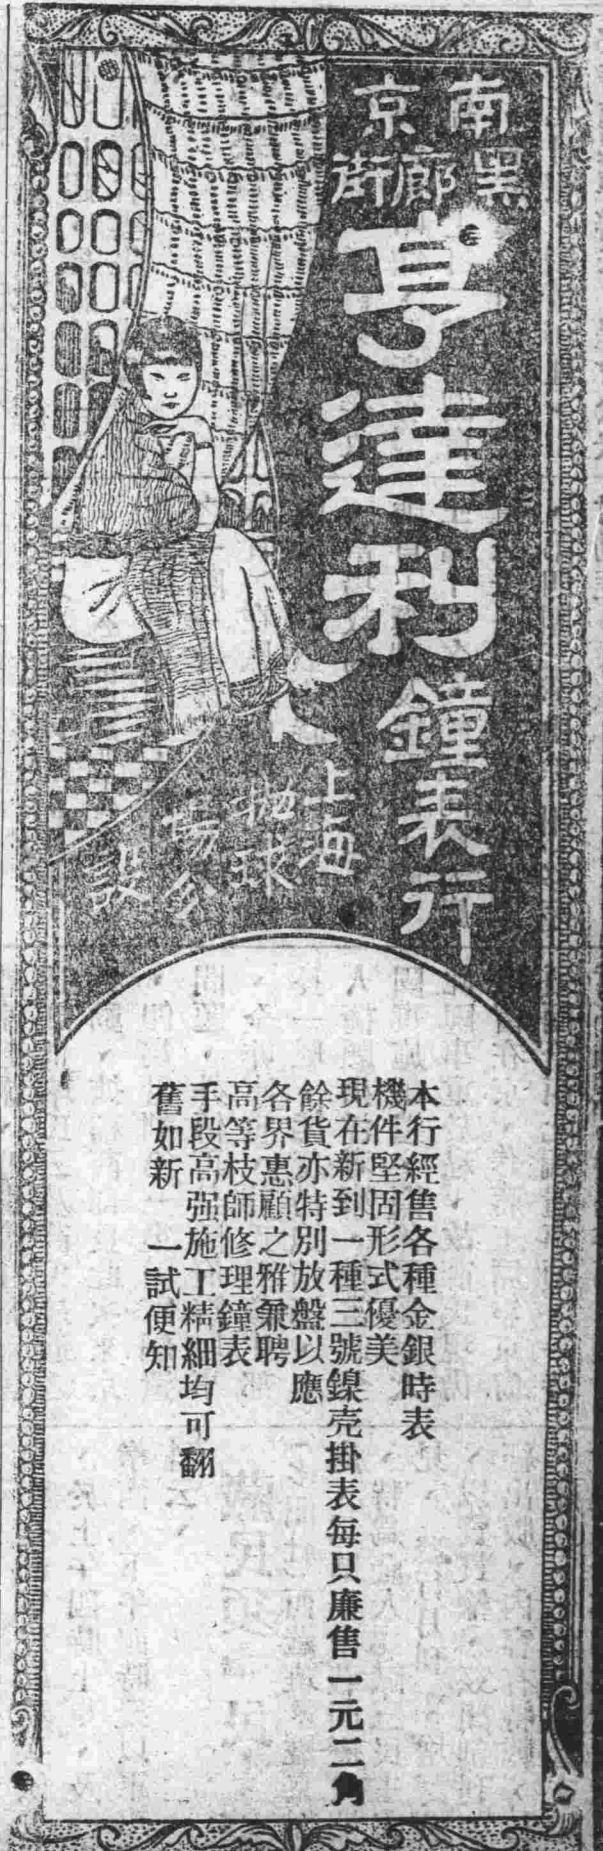 南京
黑廊街
亨達利
鐘表行
上海
拋球
場分
設
本行經售各種金銀時表
機件堅固形式優美
現在新到一種三號鎳壳掛表每只廉售一元二角
餘貨亦特別放盤以應
各界惠顧之雅兼聘
高等枝師修理鐘表
手段高强施工精細均可翻
舊如新　一試便知